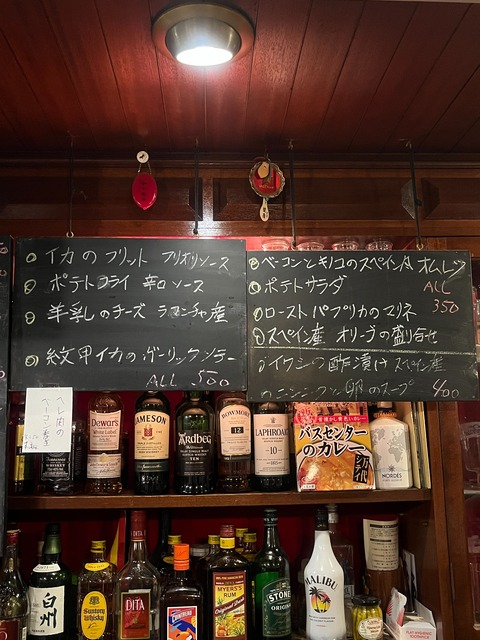 イカのフリット アリオリソース
ポテトフライ 辛口ソース
羊乳のチーズ ラマンチャ産
紋甲イカのガーリックソテー
ALL 500
ベーコンときのこのスペイン風オムレツ
ポテトサラダ
ALL
350
ローストパプリカのマリネ
スペイン産 オリーブの盛り合せ
イワシの酢漬け スペイン産
ニンニクと卵のスープ 400
Dewar's
White Label
JAMESON
Ardbeg
BOWMORE
12
LAPHROAIG
10
バスセンター
のカレー
万代シテイ
NORDÉS
白州
Suntory
Whisky
DITA
MYERS'S
RUM
Original Dark
STONE'S
ORIGINAL
MALIBU